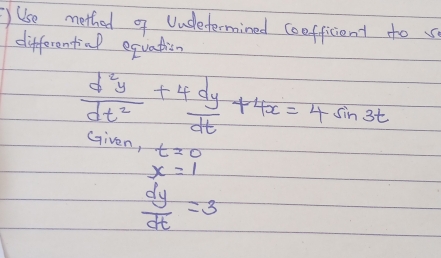 Use method of Undetermined Coefficient to
differential equation
d²y/dt² + 4 dy/dt + 4x = 4 sin 3t
Given, t = 0
x = 1
dy/dt = 3